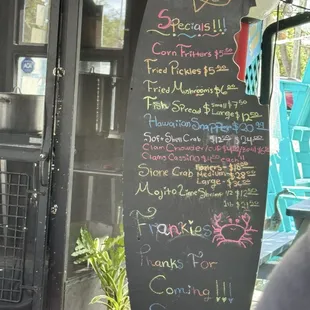 Specials!!!
Corn Fritters $5.00
Fried Pickles $5.00
Fried Mushrooms $6.00
Fish Spread $ Small $7.50
Large $12.50
Hawaiian Snapper
Soft Shell Crab $12.00 $24.00
Clam Chowder
Clams Cassino each
Stone Crab Medium
Large -
Mojita Lime Shrimp
Frankies
Thanks For
Coming!!!